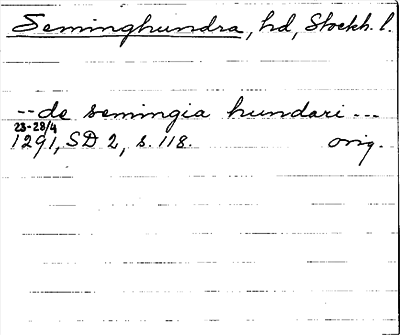 Seminghundra, hd, Stockh. l.
-- de semingia hundari ---
23-28/4
1291, SD 2, s. 118. orig.